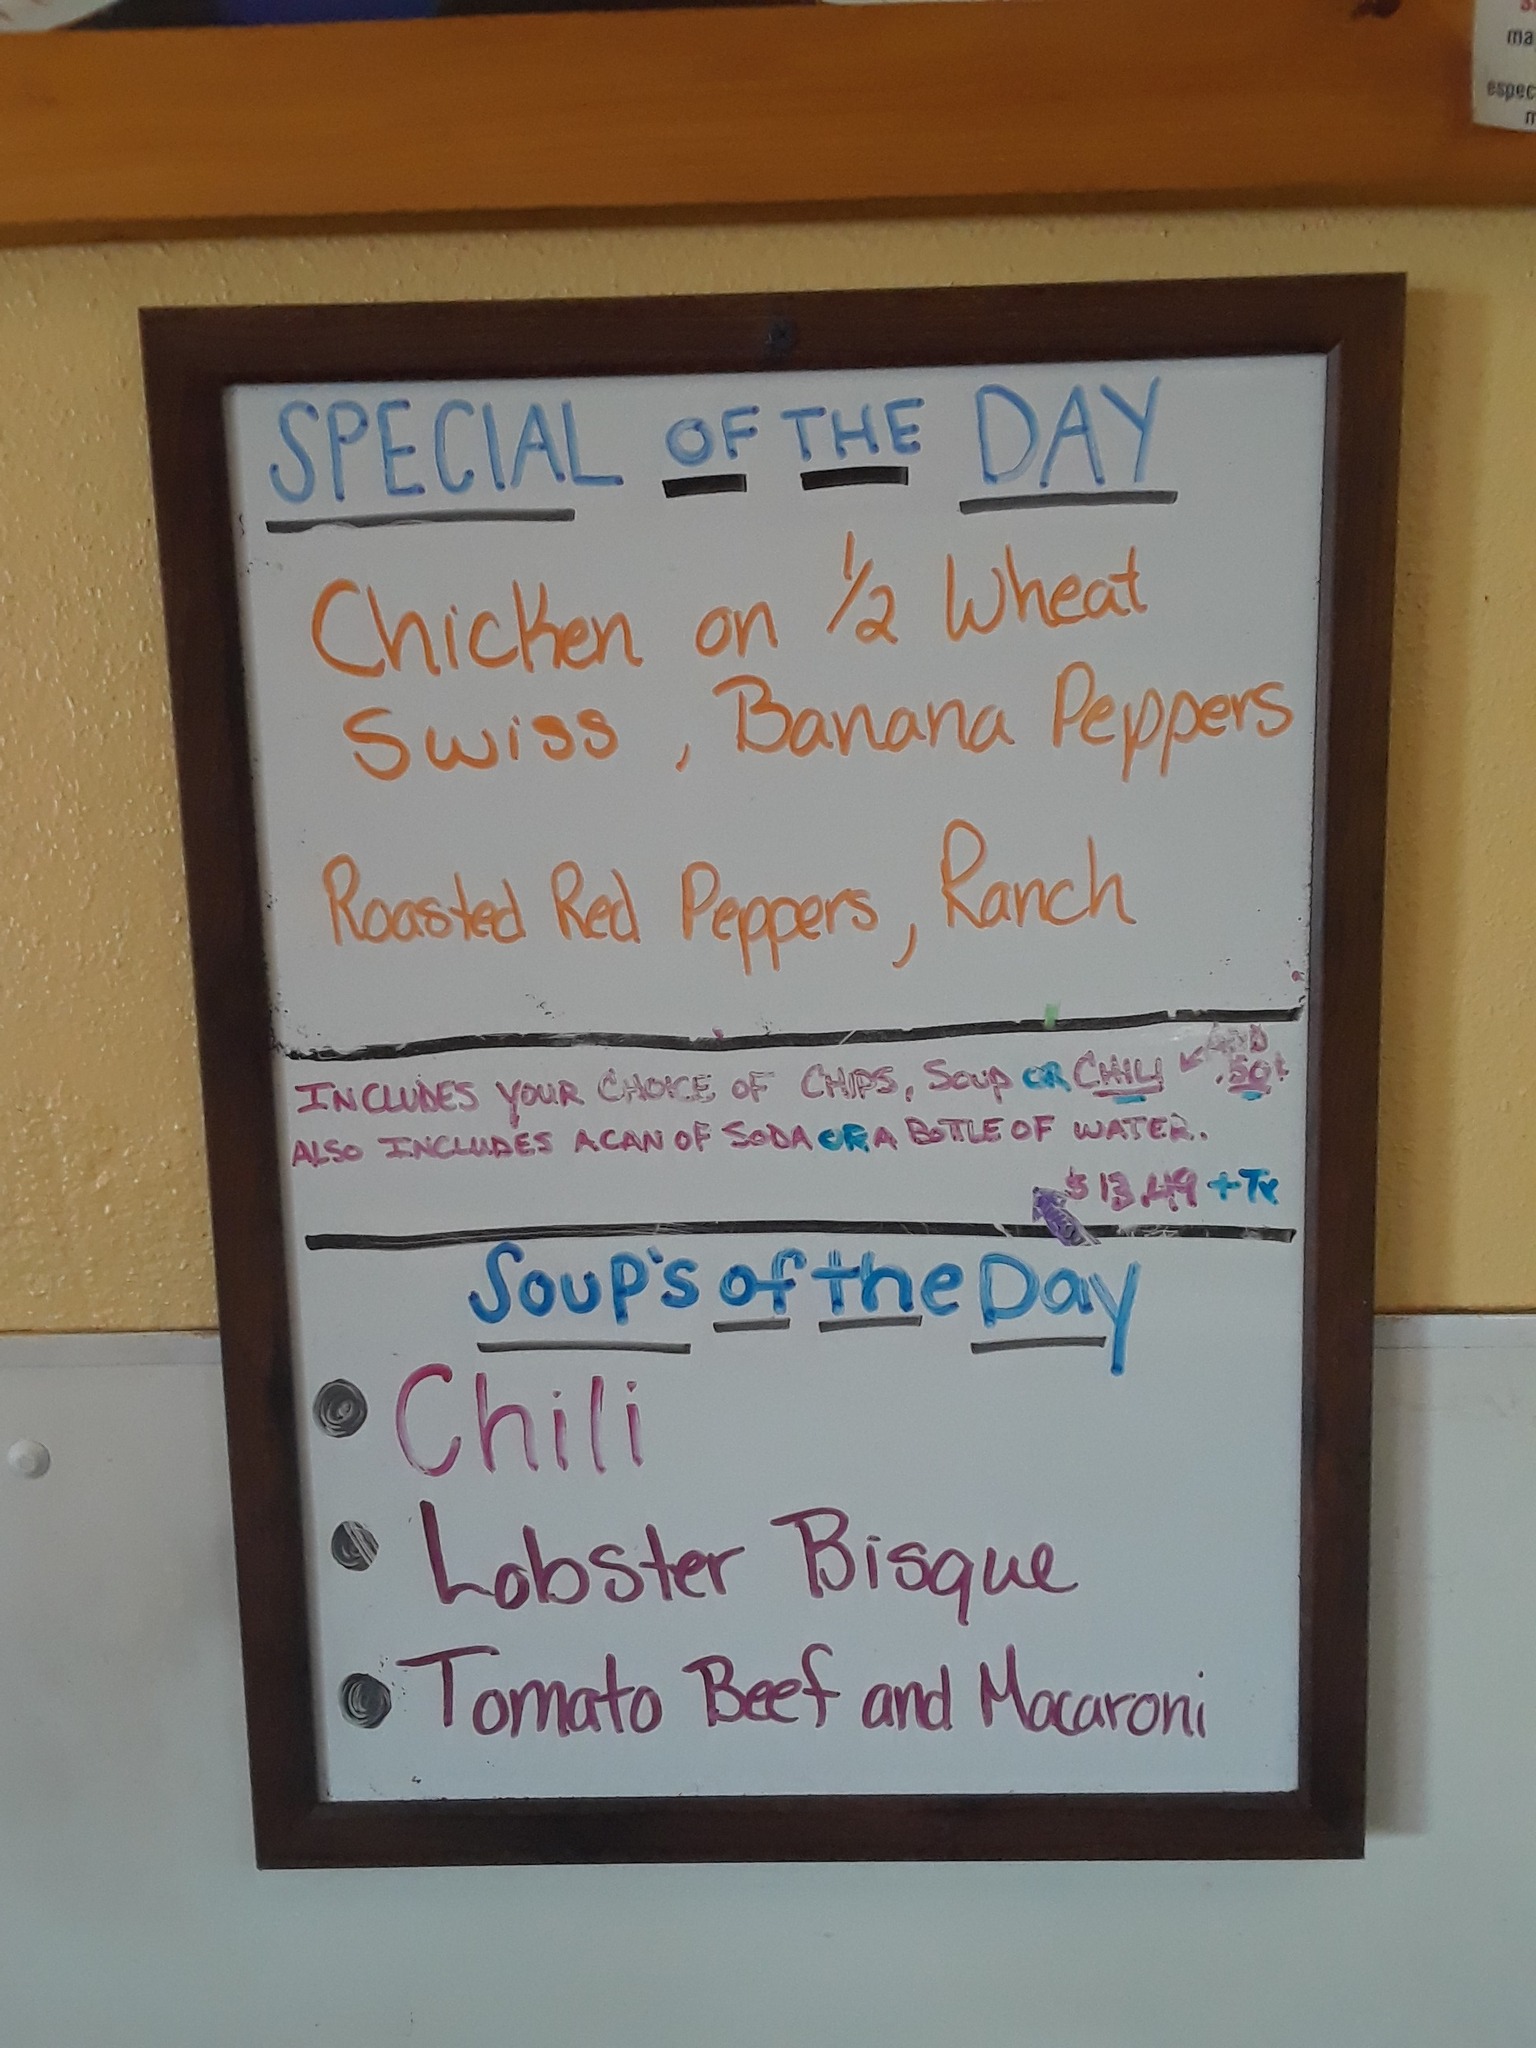 SPECIAL OF THE DAY
Chicken on 1/2 Wheat
Swiss, Banana Peppers
Roasted Red Peppers, Ranch
INCLUDES YOUR CHOICE OF CHIPS, SOUP OR CHILI ADD .50¢
ALSO INCLUDES A CAN OF SODA OR A BOTTLE OF WATER.
$13.49 + Tx
Soup's of the Day
Chili
Lobster Bisque
Tomato Beef and Macaroni
ma
espec